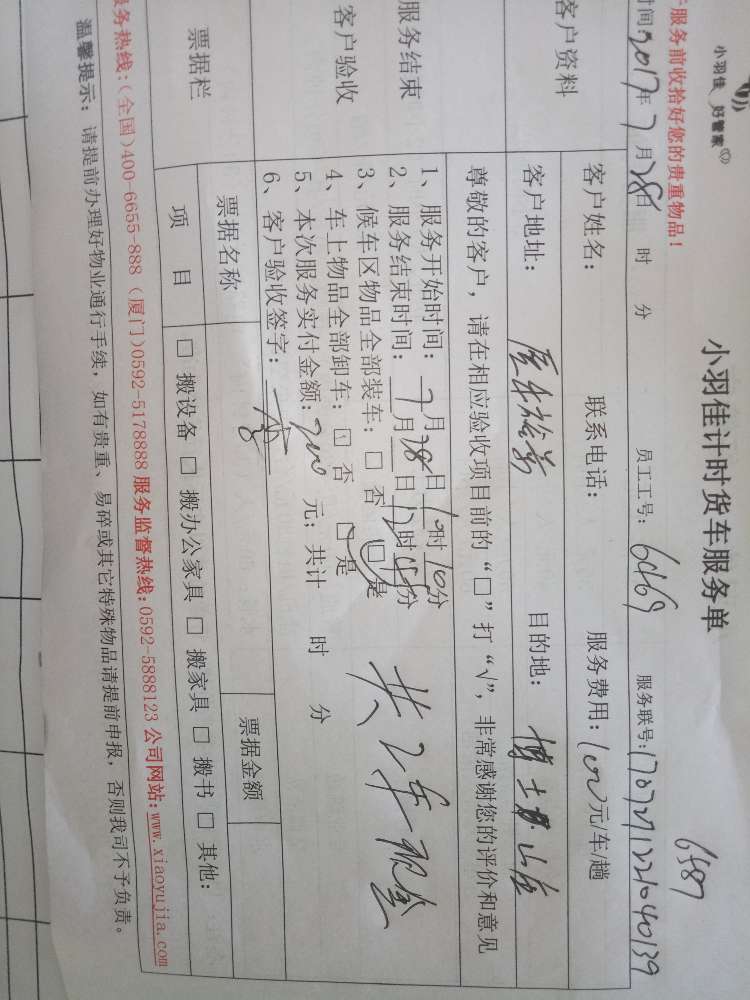 小羽佳 好管家
小羽佳计时货车服务单
6587
服务前收拾好您的贵重物品！
时间: 2017年 7月 28日 时 分 员工工号: 6069 服务联号: 170727122104039
客户资料
客户姓名: 联系电话: 服务费用: 100元/车/趟
客户地址: 目的地: 博士山庄
尊敬的客户，请在相应验收项目前的“□”打“√”，非常感谢您的评价和意见
服务结束
客户验收
1、服务开始时间: 7月28日10时10分
2、服务结束时间: 月 日12时15分
3、候车区物品全部装车: □ 否 □ 是
4、车上物品全部卸车: □ 否 □ 是
5、本次服务实付金额: 200 元; 共计 时 分
共2车 现金
6、客户验收签字:
票据栏
票据名称 票据金额
项 目 □ 搬设备 □ 搬办公家具 □ 搬家具 □ 搬书 □ 其他:
服务热线:(全国)400-6655-888 (厦门)0592-5178888 服务监督热线:0592-5888123 公司网站:www.xiaoyujia.com
温馨提示: 请提前办理好物业通行手续，如有贵重、易碎或其它特殊物品请提前申报，否则我司不予负责。